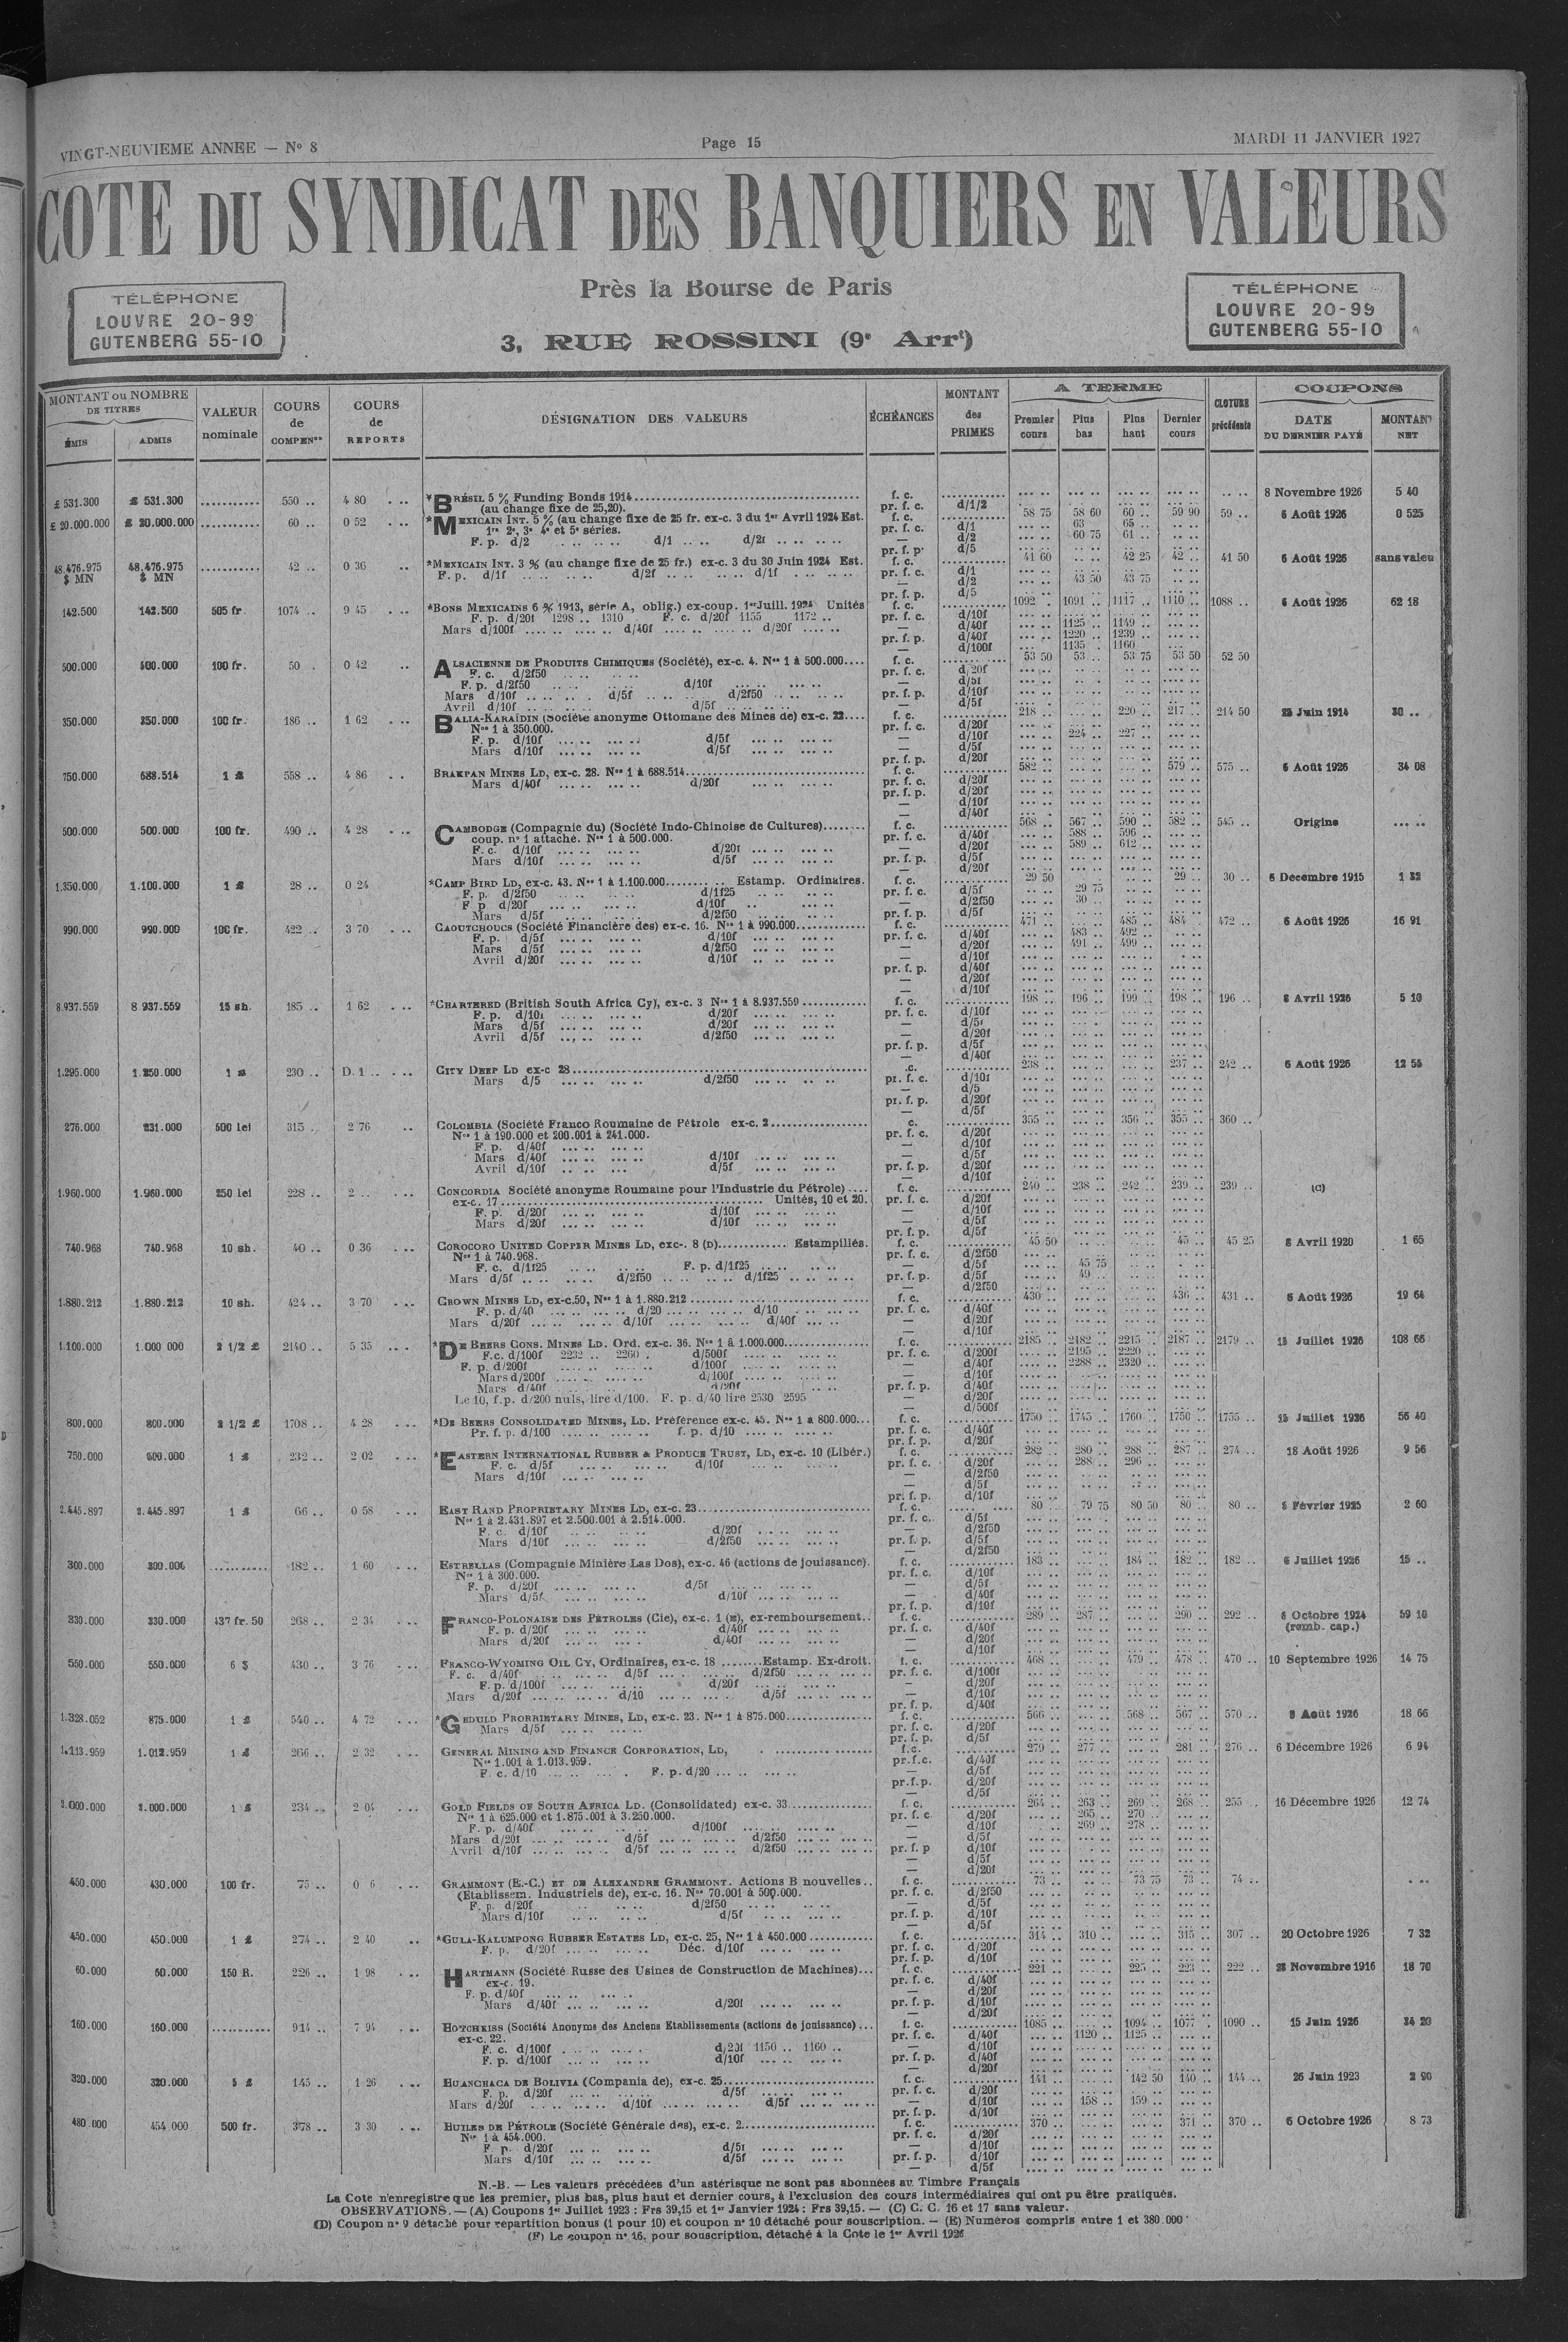 VINGT-NEUVIEME ANNEE — No 8
Page 15
MARDI 11 JANVIER 1927
COTE DU SYNDICAT DES BANQUIERS EN VALEURS
TÉLÉPHONE
LOUVRE 20-99
GUTENBERG 55-10
Près la Bourse de Paris
3, RUE ROSSINI (9e Arrt)
TÉLÉPHONE
LOUVRE 20-99
GUTENBERG 55-10
MONTANT ou NOMBRE DE TITRES
ÉMIS ADMIS
VALEUR nominale
COURS de COMPENon
COURS de REPORTS
DÉSIGNATION DES VALEURS
ÉCHÉANCES
MONTANT des PRIMES
A TERME
Premier cours Plus bas Plus haut Dernier cours
CLOTURE précédente
COUPONS
DATE DU DERNIER PAYÉ
MONTANT NET
£ 531.300 £ 531.300 550 .. 4 80 *BRÉSIL 5 % Funding Bonds 1914 f. c. 8 Novembre 1926 5 40
(au change fixe de 25,20). pr. f. c. d/1/2
£ 20.000.000 £ 20.000.000 60 .. 0 52 *MEXICAIN INT. 5 % (au change fixe de 25 fr. ex-c. 3 du 1er Avril 1924 Est. f. c. 58 75 58 60 60 .. 59 90 59 .. 6 Août 1926 0 525
1re 2e, 3e 4e et 5e séries. pr. f. c. d/1 63 65
F. p. d/2 d/1 d/2f — d/2 60 75 61 ..
pr. f. p. d/5
48.476.975 $ MN 48.476.975 $ MN 42 .. 0 36 *MEXICAIN INT. 3 % (au change fixe de 25 fr.) ex-c. 3 du 30 Juin 1924 Est. f. c. 41 60 42 25 42 .. 41 50 6 Août 1926 sans valeu
F. p. d/1f d/2f d/1f pr. f. c. d/1
— d/2 43 50 43 75
pr. f. p. d/5
142.500 142.500 505 fr. 1074 .. 9 45 *BONS MEXICAINS 6 % 1913, série A, oblig.) ex-coup. 1er Juill. 1924 Unités f. c. 1092 . 1091 .. 1117 .. 1110 .. 1088 .. 6 Août 1926 62 18
F. p. d/20f 1298 .. 1310 F. c. d/20f 1155 1172 .. pr. f. c. d/10f
Mars d/100f d/40f d/20f — d/40f 1125 .. 1149 ..
pr. f. p. d/40f 1220 .. 1239 ..
— d/100f 1135 .. 1160 ..
500.000 500.000 100 fr. 50 . 0 42 ALSACIENNE DE PRODUITS CHIMIQUES (Société), ex-c. 4. Nos 1 à 500.000 f. c. 53 50 53 .. 53 75 53 50 52 50
F. c. d/2f50 pr. f. c. d/20f
F. p. d/2f50 d/10f — d/5f
Mars d/10f d/5f d/2f50 pr. f. p. d/10f
Avril d/10f d/5f — d/5f
350.000 350.000 100 fr. 186 .. 1 62 BALIA-KARAÏDIN (Société anonyme Ottomane des Mines de) ex-c. 22 f. c. 218 .. 220 .. 217 .. 214 50 Juin 1914
Nos 1 à 350.000. pr. f. c. d/20f
F. p. d/10f d/5f — d/10f 224 .. 227 ..
Mars d/10f d/5f — d/5f
pr. f. p. d/20f
750.000 688.514 1 £ 558 .. 4 86 BRAKPAN MINES LD, ex-c. 28. Nos 1 à 688.514 f. c. 582 .. 579 .. 575 .. 6 Août 1926 34 08
Mars d/40f d/20f pr. f. c. d/20f
pr. f. p. d/20f
— d/10f
— d/40f
500.000 500.000 100 fr. 490 .. 4 28 CAMBODGE (Compagnie du) (Société Indo-Chinoise de Cultures) f. c. 568 .. 567 .. 590 .. 582 .. 545 .. Origine
coup. no 1 attaché. Nos 1 à 500.000. pr. f. c. d/40f 588 .. 596 ..
F. c. d/10f d/20f — d/20f 589 .. 612 ..
Mars d/10f d/5f pr. f. p. d/5f
— d/20f
1.350.000 1.100.000 1 £ 28 .. 0 24 *CAMP BIRD LD, ex-c. 43. Nos 1 à 1.100.000 Estamp. Ordinaires. f. c. 29 50 29 .. 30 .. 6 Décembre 1915 1 32
F. p. d/2f50 d/1f25 pr. f. c. d/5f 29 75
F p d/20f d/10f — d/2f50 30 ..
Mars d/5f d/2f50 pr. f. p. d/5f
990.000 990.000 100 fr. 422 .. 3 70 CAOUTCHOUCS (Société Financière des) ex-c. 16. Nos 1 à 990.000 f. c. 471 .. 485 .. 484 .. 472 .. 6 Août 1926 16 91
F. p. d/5f d/10f pr. f. c. d/40f 483 .. 492 ..
Mars d/5f d/2f50 — d/20f 491 .. 499 ..
Avril d/20f d/10f — d/10f
pr. f. p. d/40f
— d/20f
— d/10f
8.937.559 8 937.559 15 sh. 185 .. 1 62 *CHARTERED (British South Africa Cy), ex-c. 3 Nos 1 à 8.937.559 f. c. 198 .. 196 .. 199 .. 198 .. 196 .. 8 Avril 1926 5 10
F. p. d/10f d/20f pr. f. c. d/10f
Mars d/5f d/20f — d/5f
Avril d/5f d/2f50 — d/20f
pr. f. p. d/5f
— d/40f
1.295.000 1.250.000 1 £ 230 .. D. 1 .. CITY DEEP LD ex-c 28 .c. 238 .. 237 .. 242 .. 6 Août 1926 12 55
Mars d/5 d/2f50 pr. f. c. d/10f
— d/5
pr. f. p. d/20f
— d/5f
276.000 231.000 500 lei 315 . 2 76 COLOMBIA (Société Franco Roumaine de Pétrole ex-c. 2 c. 355 .. 356 .. 355 .. 360 ..
Nos 1 à 190.000 et 200.001 à 241.000. pr. f. c. d/20f
F. p. d/40f — d/10f
Mars d/40f d/10f — d/5f
Avril d/10f d/5f pr. f. p. d/20f
— d/10f
1.960.000 1.960.000 250 lei 228 .. 2 .. CONCORDIA Société anonyme Roumaine pour l'Industrie du Pétrole) f. c. 240 .. 238 .. 242 .. 239 .. 239 .. (C)
ex-c. 17 Unités, 10 et 20. pr. f. c. d/20f
F. p. d/20f d/10f — d/10f
Mars d/20f d/10f — d/5f
pr. f. p. d/5f
740.968 740.968 10 sh. 40 .. 0 36 COROCORO UNITED COPPER MINES LD, exc-. 8 (D) Estampillés. f. c. 45 50 45 .. 45 25 8 Avril 1920 1 65
Nos 1 à 740.968. pr. f. c. d/2f50
F. c. d/1f25 F. p. d/1f25 — d/5f 45 75
Mars d/5f d/2f50 d/1f25 pr. f. p. d/5f 49 ..
— d/2f50
1.880.212 1.880.212 10 sh. 424 .. 3 70 CROWN MINES LD, ex-c.50, Nos 1 à 1.880.212 f. c. 430 .. 436 .. 431 .. 6 Août 1926 19 64
F. p. d/40 d/20 d/10 pr. f. c. d/40f
Mars d/20f d/10f d/40f — d/20f
— d/10f
1.100.000 1.000 000 2 1/2 £ 2140 .. 5 35 *DE BEERS CONS. MINES LD. Ord. ex-c. 36. Nos 1 à 1.000.000 f. c. 2185 .. 2182 .. 2215 .. 2187 .. 2179 .. Juillet 1926 108 66
F.c. d/100f 2232 .. 2260 . d/500f pr. f. c. d/200f 2195 .. 2220 ..
F. p. d/200f d/100f — d/40f 2288 .. 2320 ..
Mars d/200f d/100f — d/10f
Mars d/40f d/20f pr. f. p. d/40f
Le 10, f.p. d/200 nuls, lire d/100. F. p. d/40 lire 2530 2595 — d/20f
— d/500f
800.000 800.000 2 1/2 £ 1708 .. 4 28 *DE BEERS CONSOLIDATED MINES, LD. Préférence ex-c. 45. Nos 1 à 800.000 f. c. 1750 .. 1745 .. 1760 .. 1750 .. 1755 .. Juillet 1926 56 40
Pr. f. p. d/100 f. p. d/10 pr. f. c. d/40f
pr. f. p. d/20f
750.000 500.000 1 £ 232 .. 2 02 *EASTERN INTERNATIONAL RUBBER & PRODUCE TRUST, LD, ex-c. 10 (Libér.) f. c. 282 .. 280 .. 288 .. 287 .. 274 .. 18 Août 1926 9 56
F. c. d/5f d/10f pr. f. c. d/20f 288 .. 296 ..
Mars d/10f — d/2f50
— d/5f
pr. f. p. d/10f
2.445.897 2.445.897 1 £ 66 .. 0 58 EAST RAND PROPRIETARY MINES LD, ex-c. 23 f. c. 80 79 75 80 50 80 .. 80 .. Février 1925 2 60
Nos 1 à 2.431.897 et 2.500.001 à 2.514.000. pr. f. c. d/5f
F. c. d/10f d/20f — d/2f50
Mars d/10f d/2f50 pr. f. p. d/5f
— d/2f50
300.000 300.000 182 .. 1 60 ESTRELLAS (Compagnie Minière Las Dos), ex-c. 46 (actions de jouissance). f. c. 183 .. 184 .. 182 .. 182 .. 6 Juillet 1926 15 ..
Nos 1 à 300.000. pr. f. c. d/10f
F. p. d/20f d/5f — d/5f
Mars d/5f d/10f — d/40f
pr. f. p. d/10f
330.000 330.000 437 fr. 50 268 .. 2 34 FRANCO-POLONAISE DES PÉTROLES (Cie), ex-c. 1 (E), ex-remboursement f. c. 289 .. 287 .. 290 .. 292 .. 6 Octobre 1924 59 10
F. p. d/20f d/40f pr. f. c. d/40f (remb. cap.)
Mars d/20f d/40f — d/20f
— d/10f
550.000 550.000 6 $ 430 .. 3 76 FRANCO-WYOMING OIL CY, Ordinaires, ex-c. 18 Estamp. Ex-droit. f. c. 468 .. 479 .. 478 .. 470 .. 10 Septembre 1926 14 75
F. c. d/40f d/5f d/2f50 pr. f. c. d/100f
F. p. d/100f d/20f — d/20f
Mars d/20f d/10 d/5f — d/10f
pr. f. p. d/40f
1.328.052 875.000 1 £ 540 .. 4 72 *GEDULD PRORRIETARY MINES, LD, ex-c. 23. Nos 1 à 875.000 f. c. 566 .. 568 .. 567 .. 570 .. Août 1926 18 66
Mars d/5f pr. f. c. d/20f
pr. f. p. d/5f
1.113.959 1.012.959 1 £ 266 .. 2 32 GENERAL MINING AND FINANCE CORPORATION, LD, f.c. 279 .. 277 .. 281 .. 276 .. 6 Décembre 1926 6 94
Nos 1.001 à 1.013.959. pr.f.c. d/40f
F. c. d/10 F. p. d/20 — d/5f
pr.f.p. d/20f
— d/5f
2.000.000 2.000.000 1 £ 234 .. 2 04 GOLD FIELDS OF SOUTH AFRICA LD. (Consolidated) ex-c. 33 f. c. 264 .. 263 .. 269 .. 268 .. 255 .. 16 Décembre 1926 12 74
Nos 1 à 625.000 et 1.875.001 à 3.250.000. pr. f. c d/20f 265 .. 270 ..
F. p. d/40f d/100f — d/10f 269 .. 278 ..
Mars d/20f d/5f d/2f50 — d/5f
Avril d/10f d/5f d/2f50 pr. f. p d/10f
— d/5f
— d/20f
450.000 430.000 100 fr. 75 .. 0 6 GRAMMONT (E.-C.) ET DE ALEXANDRE GRAMMONT. Actions B nouvelles f. c. 73 .. 73 75 73 .. 74 ..
(Etablissem. Industriels de), ex-c. 16. Nos 70.001 à 500.000. pr. f. c. d/2f50
F. p. d/20f d/2f50 — d/5f
Mars d/10f d/5f pr. f. p. d/10f
— d/5f
450.000 450.000 1 £ 274 .. 2 40 *GULA-KALUMPONG RUBBER ESTATES LD, ex-c. 25, Nos 1 à 450.000 f. c. 314 .. 310 .. 315 .. 307 .. 20 Octobre 1926 7 32
F. p. d/20f Déc. d/10f pr. f. c. d/20f
pr. f. p. d/10f
60.000 60.000 150 R. 226 .. 1 98 HARTMANN (Société Russe des Usines de Construction de Machines) f. c. 221 .. 225 .. 223 .. 222 .. Novembre 1916 18 70
ex-c. 19. pr. f. c. d/40f
F. p. d/40f — d/20f
Mars d/40f d/20f pr. f. p. d/10f
— d/20f
160.000 160.000 914 .. 7 94 HOTCHKISS (Société Anonyme des Anciens Etablissements (actions de jouissance) f. c. 1085 .. 1094 .. 1077 . 1090 .. 15 Juin 1926 34 20
ex-c. 22. pr. f. c. d/40f 1120 .. 1125 ..
F. c. d/100f d/20f 1150 .. 1160 .. — d/10f
F. p. d/100f d/10f pr. f. p. d/40f
— d/20f
320.000 320.000 5 £ 145 .. 1 26 HUANCHACA DE BOLIVIA (Compania de), ex-c. 25 f. c. 141 .. 142 50 140 .. 144 .. 26 Juin 1923 2 90
F. p. d/20f d/5f pr. f. c. d/20f
Mars d/20f d/10f d/5f — d/10f 158 .. 159 ..
pr. f. p. d/10f
480.000 454 000 500 fr. 378 .. 3 30 HUILES DE PÉTROLE (Société Générale des), ex-c. 2 f. c. 370 .. 371 .. 370 .. 6 Octobre 1926 8 73
Nos 1 à 454.000. pr. f. c. d/20f
F. p. d/20f d/5f — d/10f
Mars d/10f d/5f pr. f. p. d/10f
— d/5f
N.-B. — Les valeurs précédées d'un astérisque ne sont pas abonnées au Timbre Français
La Cote n'enregistre que les premier, plus bas, plus haut et dernier cours, à l'exclusion des cours intermédiaires qui ont pu être pratiqués.
OBSERVATIONS. — (A) Coupons 1er Juillet 1923 : Frs 39,15 et 1er Janvier 1924 : Frs 39,15. — (C) C. C. 16 et 17 sans valeur.
(D) Coupon no 9 détaché pour répartition bonus (1 pour 10) et coupon no 10 détaché pour souscription. — (E) Numéros compris entre 1 et 380.000
(F) Le coupon no 16, pour souscription, détaché à la Cote le 1er Avril 1926